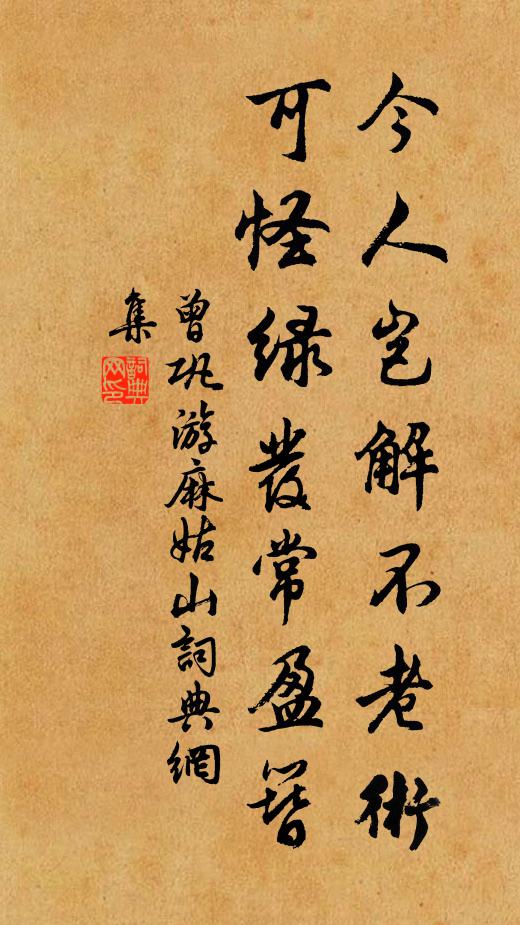 今人岂解不老術
可怪緑發常盈簪
曾巩游麻姑山詞典網
集
詞典
网印